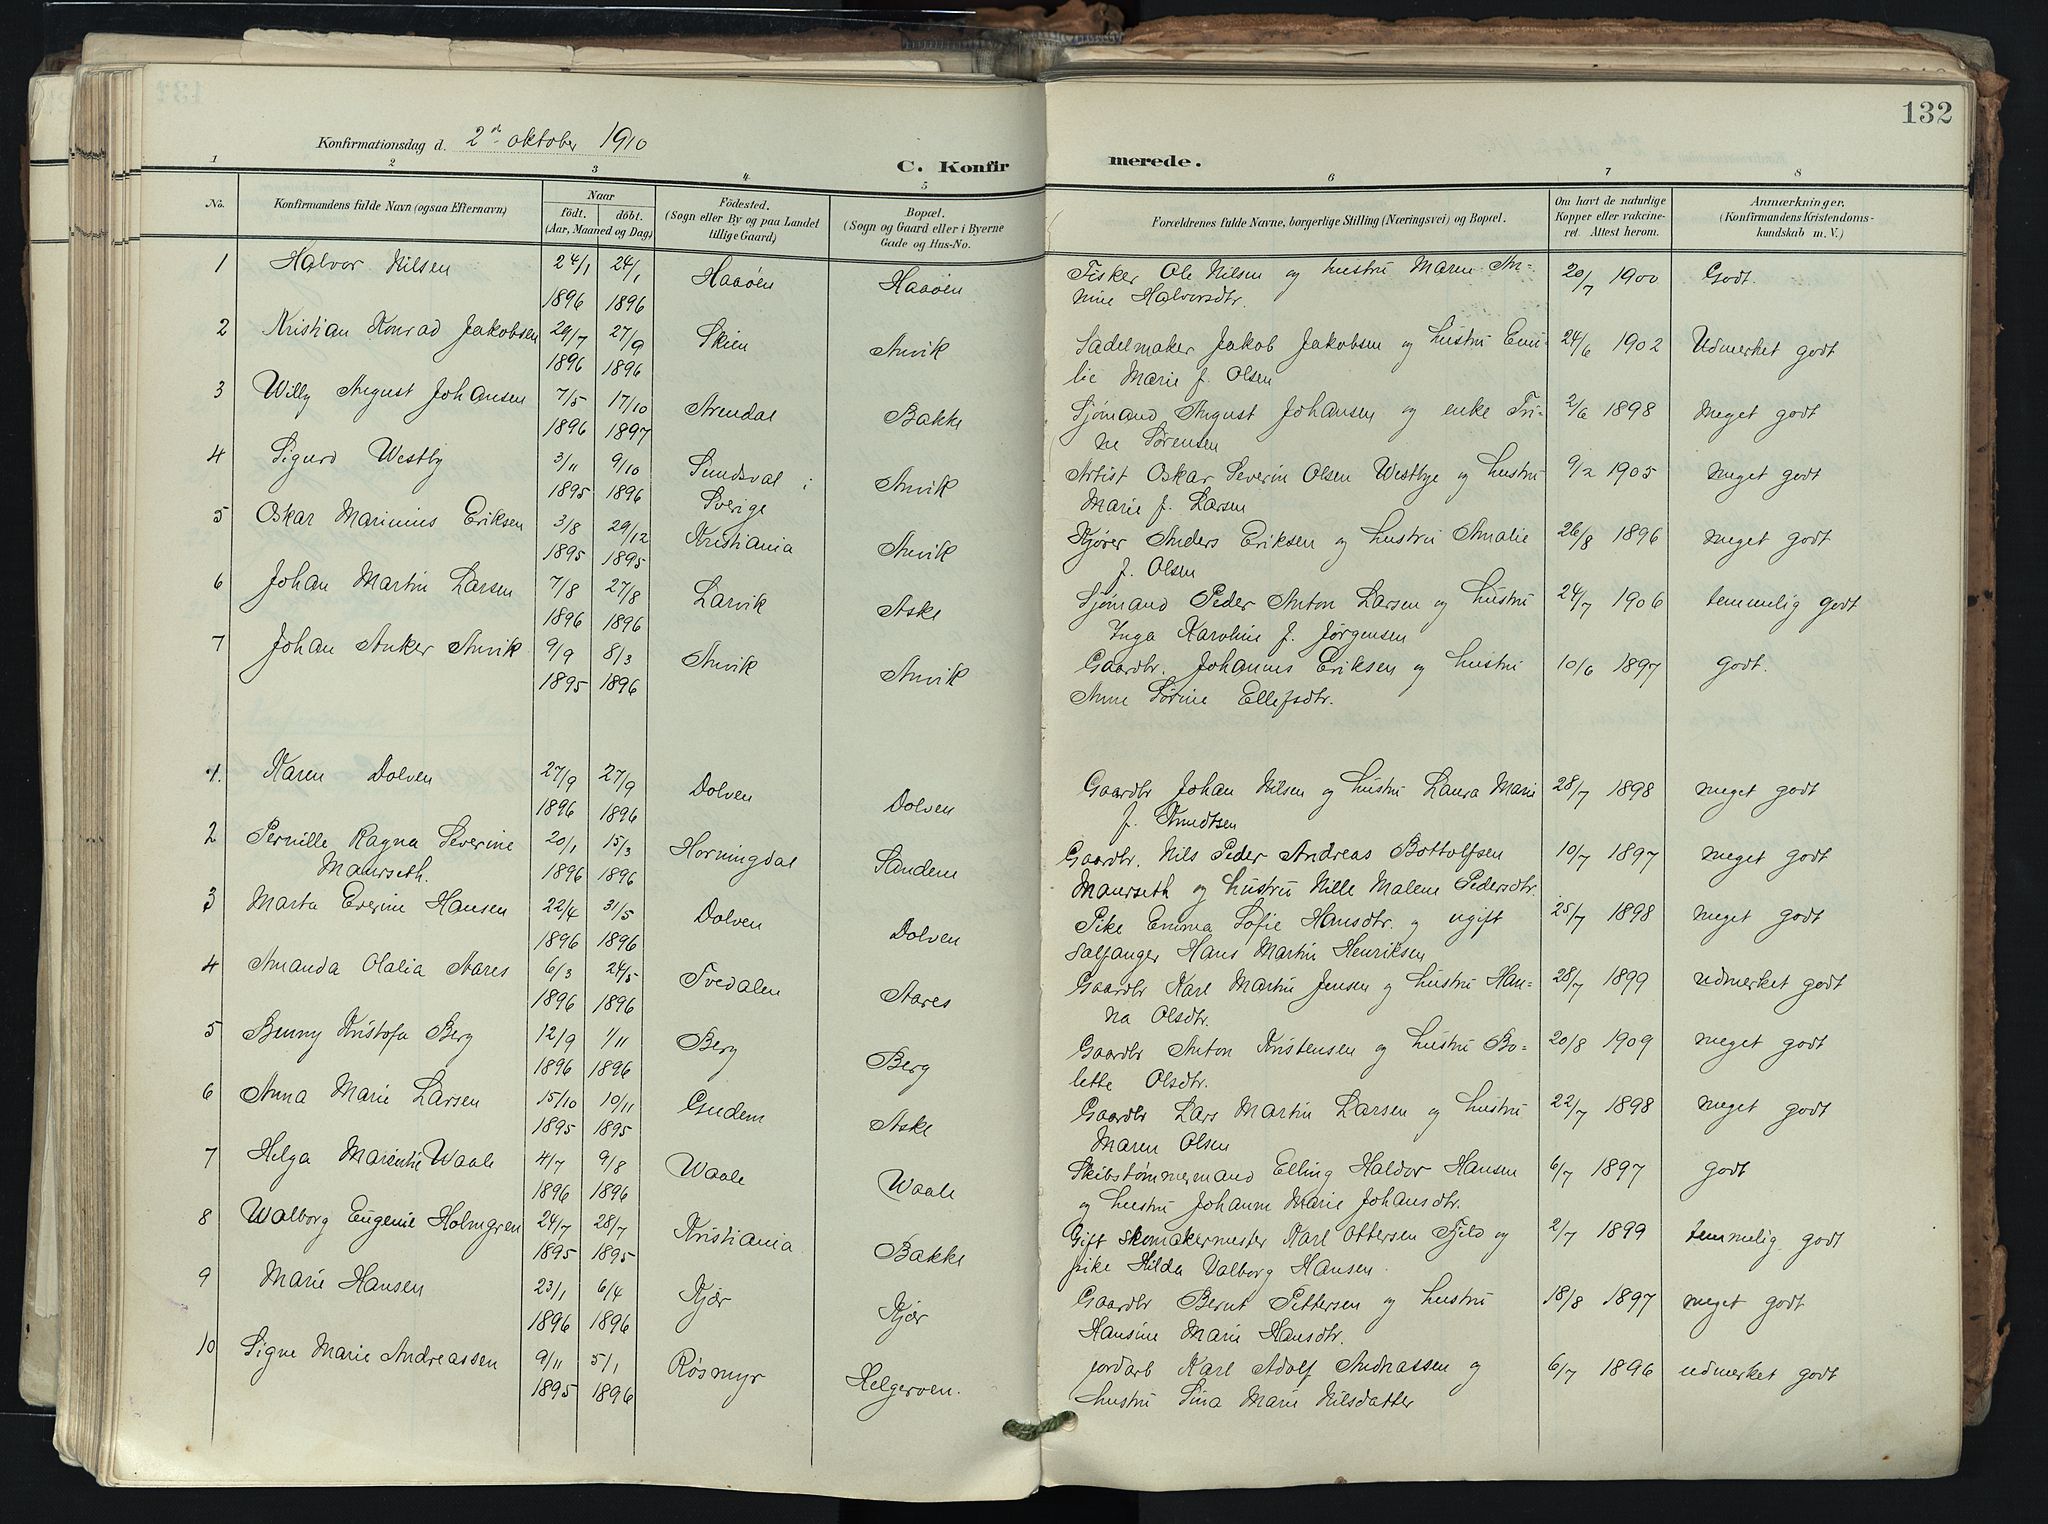 132
Konfirmationsdag d. 2den oktober 1910
C. Konfirmerede.
1 2 3 4 5 6 7 8
No. Konfirmandens fulde Navn (ogsaa Efternavn) Naar födt. döbt. (Aar, Maaned og Dag) Födested. (Sogn eller By og paa Landet tillige Gaard) Bopæl. (Sogn og Gaard eller i Byerne Gade og Hus-No. Forældrenes fulde Navne, borgerlige Stilling (Næringsvei) og Bopæl. Om havt de naturlige Kopper eller vakcineret. Attest herom. Anmærkninger. (Konfirmandens Kristendomskundskab m. V.)
1 Halvor Nilsen 24/1 24/1 Haaöen Haaöen Fisker Ole Nilsen og hustru Maren An- 20/7 1900 Godt.
1896 1896 nine Halvorsdtr.
2 Kristian Konrad Jakobsen 29/7 27/9 Skien Anvik Sadelmaker Jakob Jakobsen og hustru Emi- 24/6 1902 Udmerket godt
1896 1896 lie Marie f. Olsen
3 Willy August Johansen 7/5 17/10 Arendal Bakke Sjömand August Johansen og enke Tri- 2/6 1898 Meget godt
1896 1897 ne Sörensen
4 Sigurd Westby 3/11 9/10 Sundsval i Anvik Artist Oskar Severin Olsen Westbye og hustru 9/2 1905 meget godt
1895 1896 Sverige Marie f. Larsen
5 Oskar Marinius Eriksen 3/8 29/12 Kristiania Anvik Kjörer Anders Eriksen og hustru Amalie 26/8 1896 meget godt
1895 1895 f. Olsen
6 Johan Martin Larsen 7/8 27/8 Larvik Aske Sjömand Peder Anton Larsen og hustru 24/7 1906 temmelig godt
1896 1896 Inga Karoline f. Jörgensen
7 Johan Anker Anvik 9/9 8/3 Anvik Anvik Gaardbr. Johannes Eriksen og hustru 10/6 1897 godt.
1895 1896 Anne Sörine Ellefsdtr.
1. Karen Dolven 27/9 27/9 Dolven Dolven Gaardbr Johan Nilsen og hustru Laura Marie 28/7 1898 meget godt
1896 1896 f. Knudtsen
2 Pernille Ragna Severine 20/1 15/3 Horningdal Sandem Gaardbr. Nils Peder Andreas Bottolfsen 10/7 1897 meget godt
Maurseth. 1896 1896 Maurseth og hustru Nille Malene Pedersdtr.
3 Marta Everine Hansen 22/4 31/5 Dolven Dolven Pike Emma Sofie Hansdtr. og ugift 25/7 1898 meget godt
1896 1896 sælfanger Hans Martin Henriksen
4 Amanda Olalia Aares 6/3 24/5 Tvedalen Aares Gaardbr Karl Martin Jensen og hustru Han- 28/7 1899 udmerket godt
1896 1896 na Olsdtr.
5 Benny Kristofa Berg 12/9 1/11 Berg Berg Gaardbr Anton Kristensen og hustru Bo- 20/8 1909 meget godt
1896 1896 lette Olsdtr.
6 Anna Marie Larsen 15/10 10/11 Gudem Aske Gaardbr Lars Martin Larsen og hustru 22/7 1898 meget godt
1895 1895 Maren Olsen
7 Helga Marentie Waale 4/7 9/8 Waale Waale Skibstömmermand Elling Haldor Hansen 6/7 1897 godt
1896 1896 og hustru Johanne Marie Johansdtr.
8 Walborg Eugenie Holmgren 24/7 28/7 Kristiania Bakke Gift skomakermester Karl Ottersen Fjeld og 2/7 1899 temmelig godt
1895 1895 pike Hilda Valborg Hansen.
9 Marie Hansen 23/1 6/4 Kjær Kjær Gaardbr Bernt Pettersen og hustru 18/8 1897 meget godt
1896 1896 Hansine Marie Hansdtr.
10 Signe Marie Andreassen 9/11 5/1 Rösmyr Helgeroen. jordarb Karl Adolf Andreassen og 6/7 1896 udmerket godt
1895 1896 hustru Sina Marie Nilsdatter